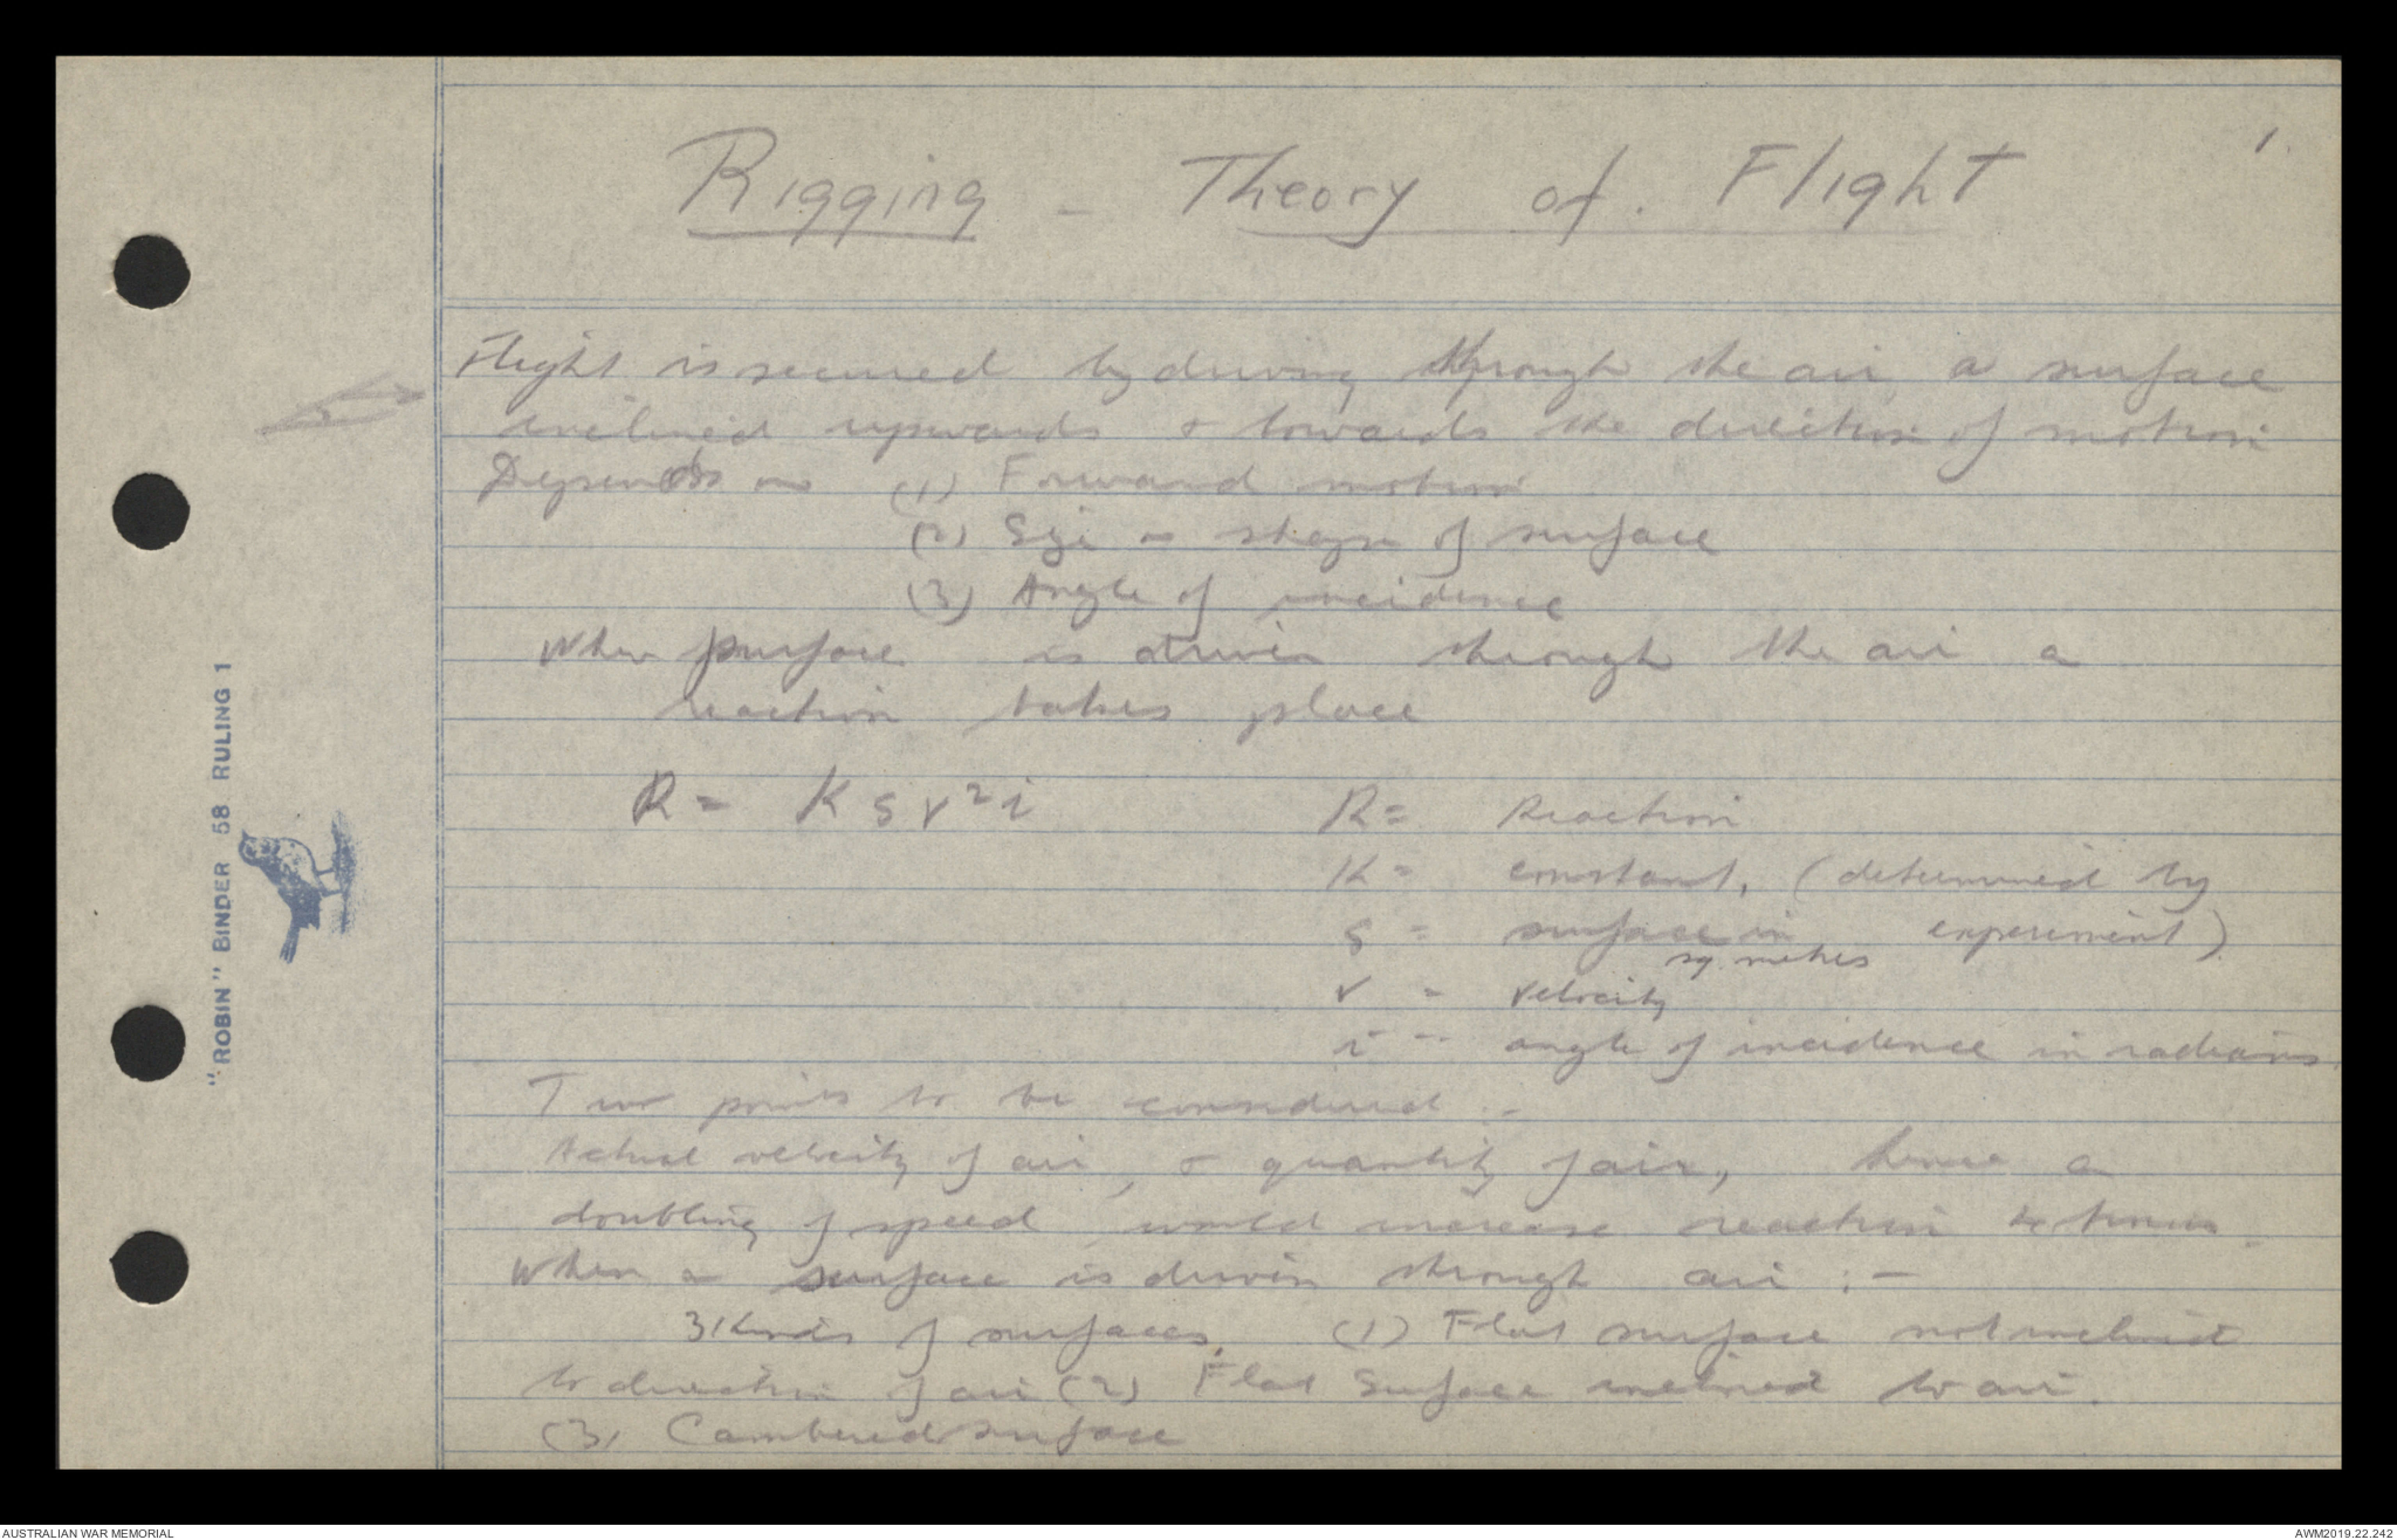 1.
Rigging - Theory of. Flight
Flight is secured by driving through the air a surface
inclined upwards & towards the direction of motion
Depends on (1) Forward motion
(2) Size & shape of surface
(3) Angle of incidence
When surface is driven through the air a
reaction takes place
R = K s v² i R = Reaction
K = constant, (determined by
s = surface in experiment)
sq. metres
v = velocity
i = angle of incidence in radians
Two points to be considered :-
Actual velocity of air, & quantity of air, hence a
doubling of speed would increase reaction 4 times.
When a surface is driven through air :-
3 Kinds of surfaces. (1) Flat surface not inclined
to direction of air (2) Flat Surface inclined to air.
(3) Cambered surface
"ROBIN" BINDER 58 RULING 1
AUSTRALIAN WAR MEMORIAL
AWM2019.22.242